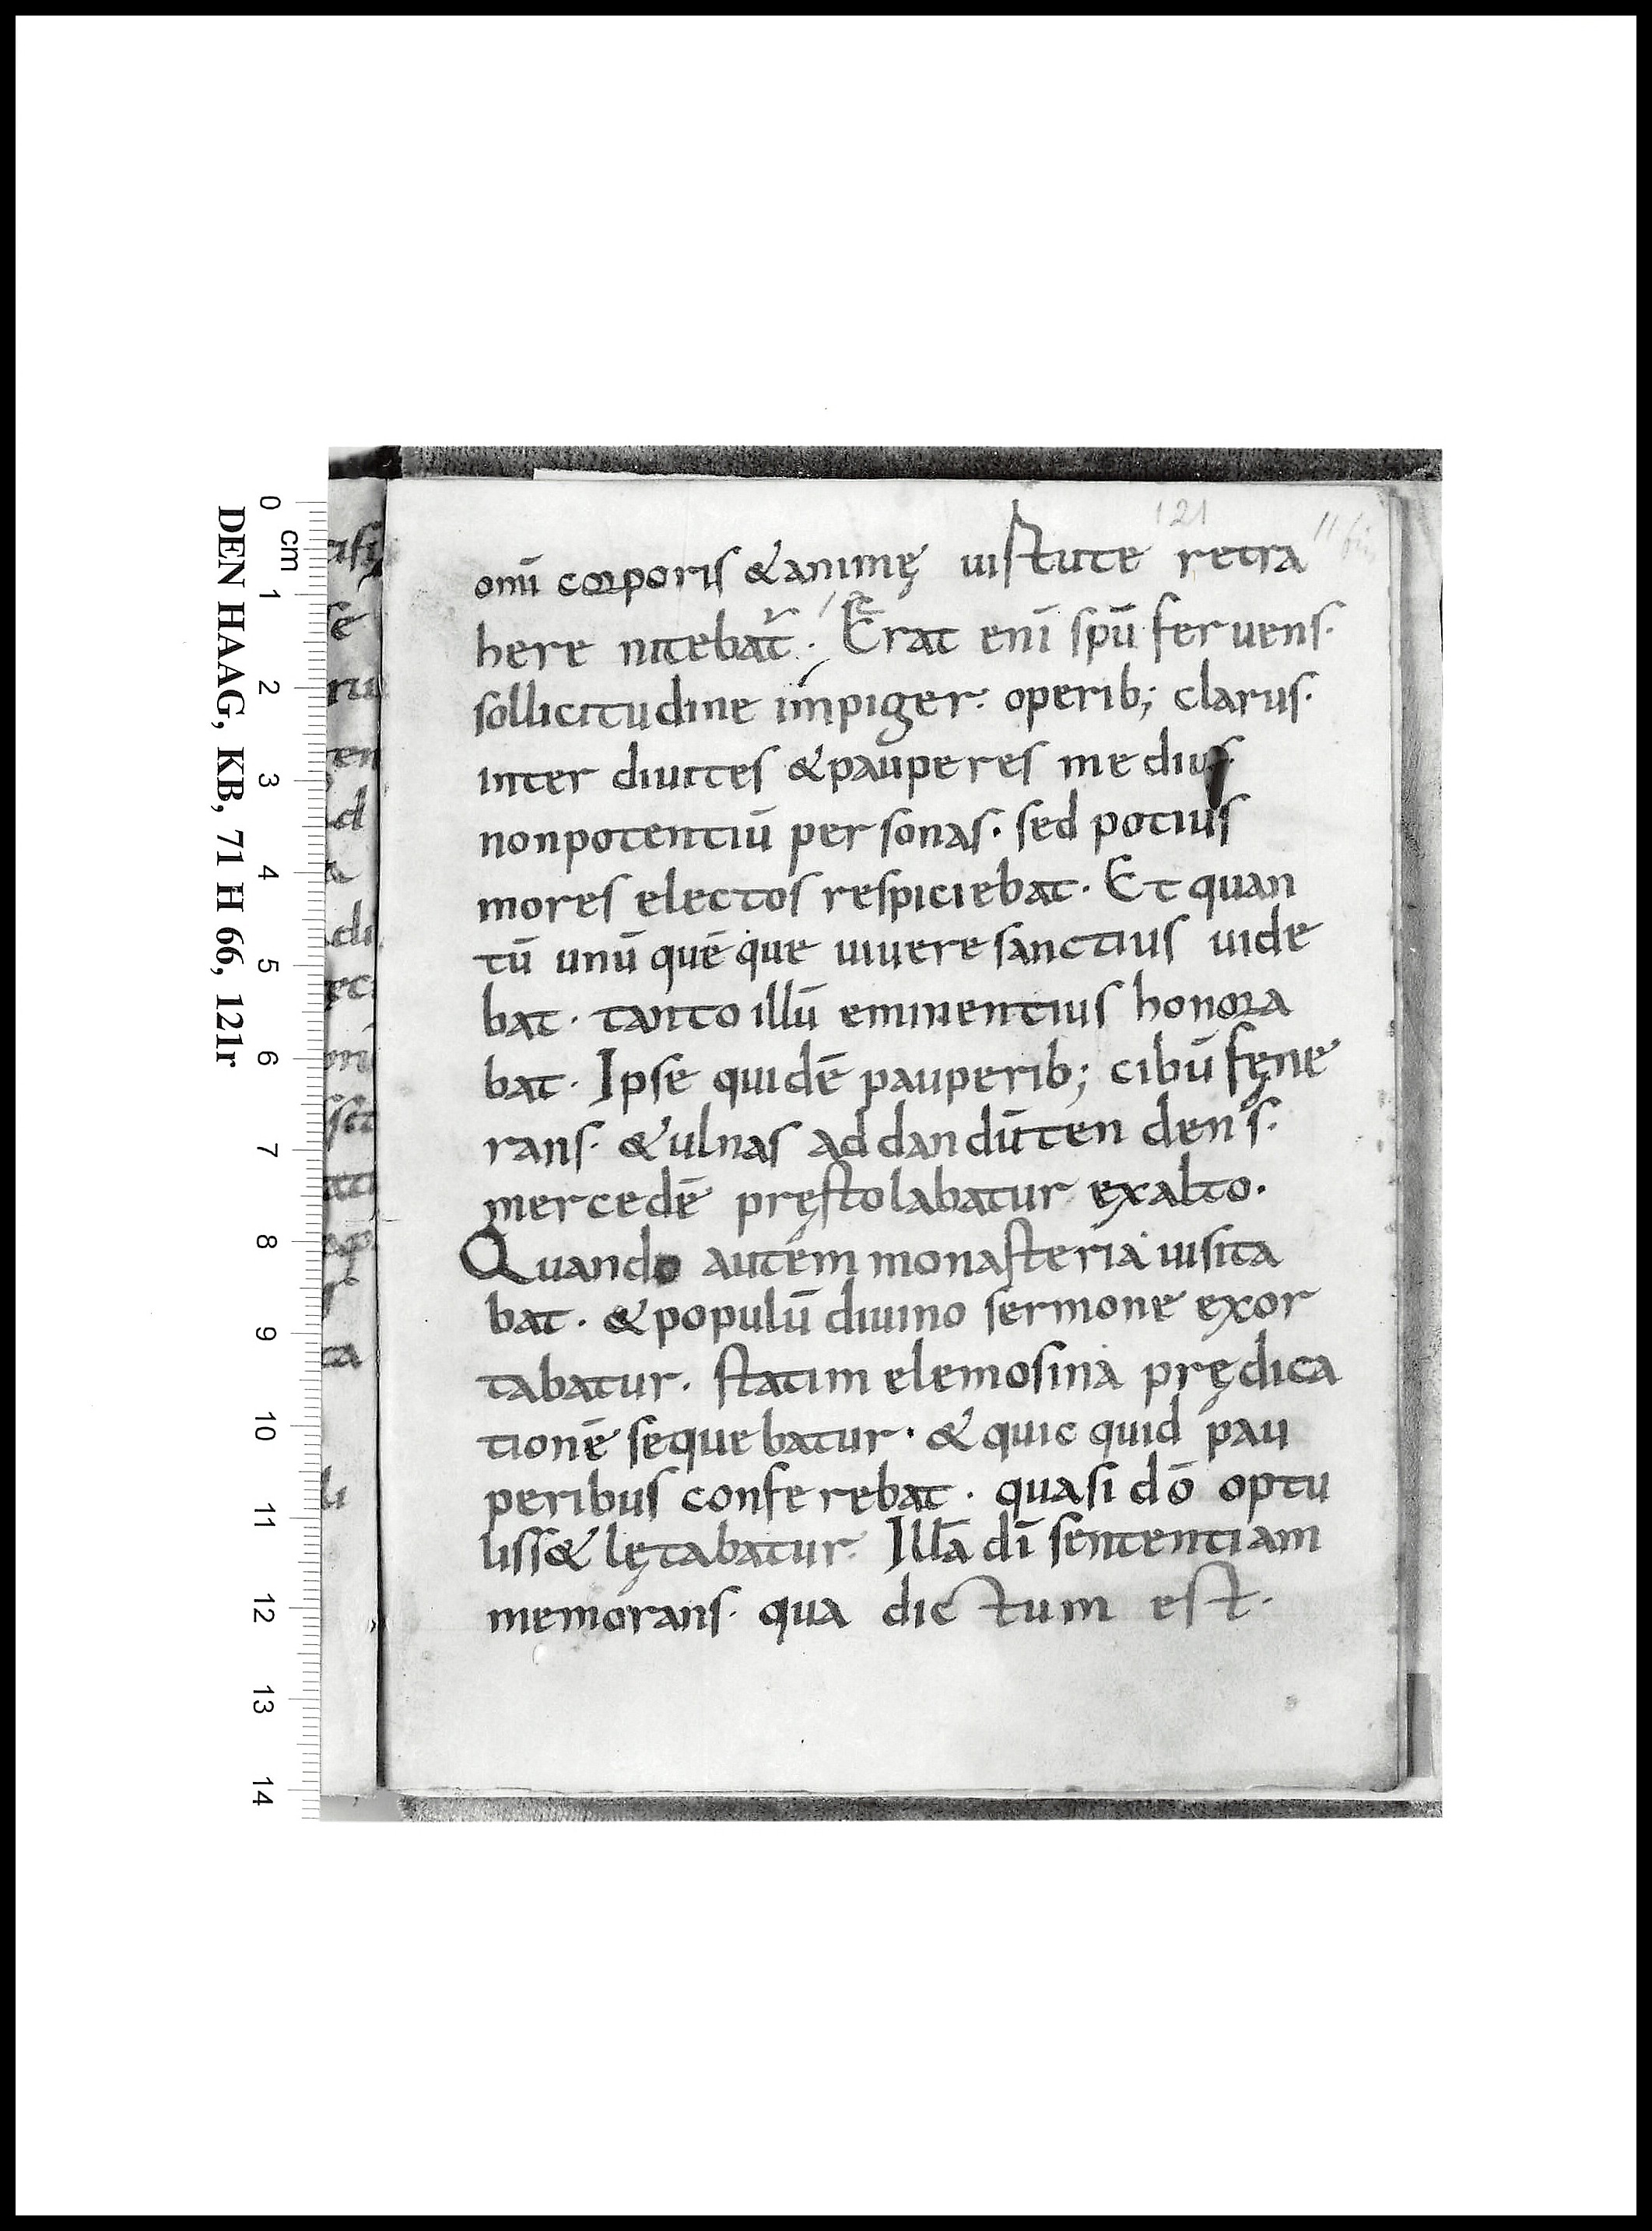 121
omī corporis &animę uirtute retra
here nitebat̄. Erat enī spū feruens.
sollicitudine impiger. operib; clarus.
inter diuites &pauperes medius.
nonpotentiū personas. sed potius
mores electos respiciebat. Et quan
tū unū quē que uiuere sanctius uide
bat. tanto illū eminentius honora
bat. Ipse quidē pauperib; cibū fęne
rans. &ulnas addandū tendens.
mercedē pręstolabatur exalto.
Quando autem monasteria uisita
bat. &populū diuino sermone exor
tabatur. statim elemosina prędica
tionē sequebatur. & quic quid pau
peribus conferebat. quasi dō optu
liss& lętabatur. Illā dī sententiam
memorans. qua dictum est.
0 cm 1 2 3 4 5 6 7 8 9 10 11 12 13 14
DEN HAAG, KB, 71 H 66, 121r